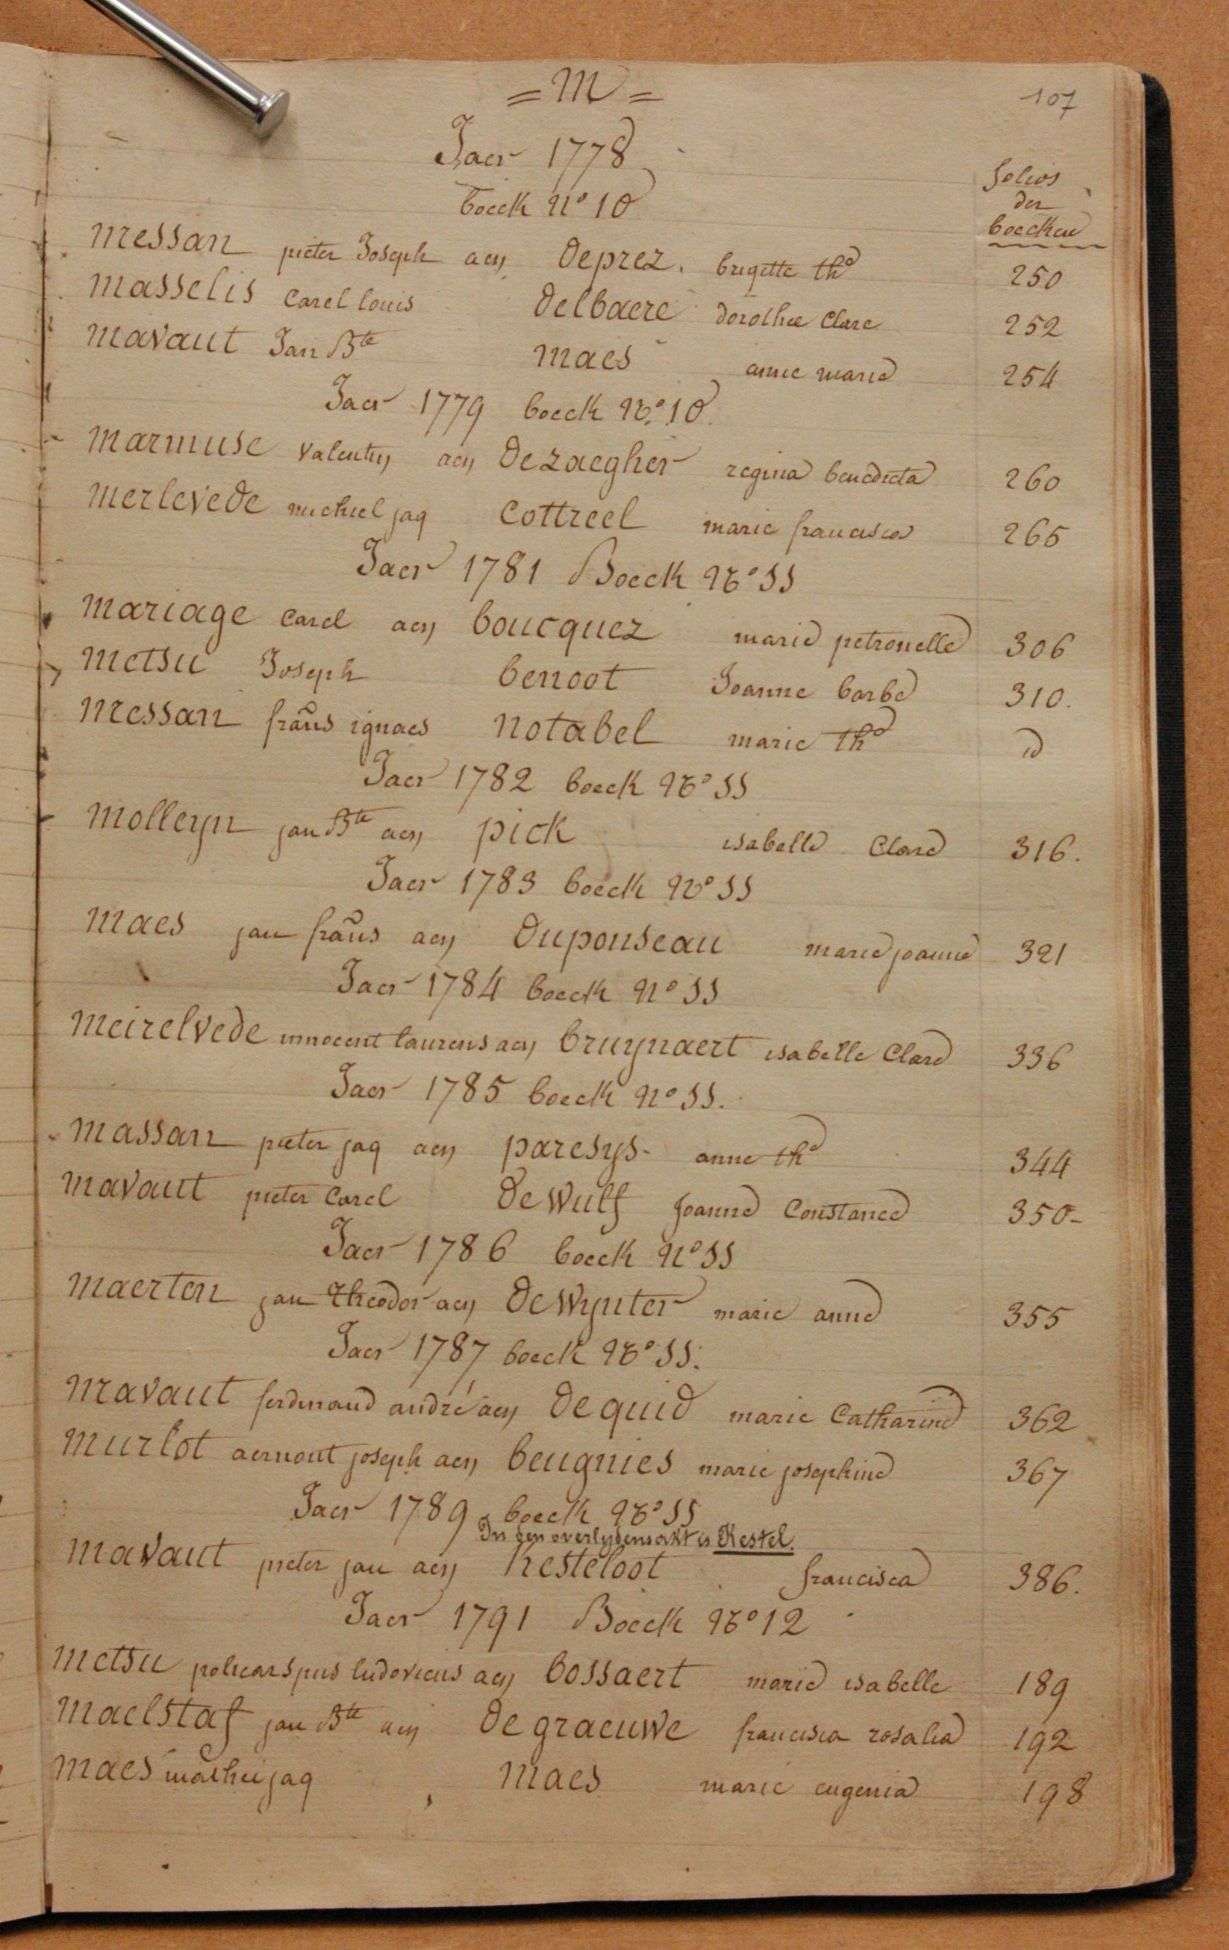 = M =
107
Jaer 1778
boeck N° 10
folios
der
boecken
messan pieter Joseph aen Deprez. brigitte th^e 250
masselis Carel louis Delbaere dorothee Clare 252
mavaut Jan B^te maes anne marie 254
Jaer 1779 boeck N° 10.
marmuse valentyn aen Dezaegher regina benedicta 260
merlevede michiel jaq Cottreel marie francisca 265
Jaer 1781 Boeck N° 11
mariage Carel aen boucquez marie petronelle 306
metsu Joseph benoot Joanne barbe 310.
messan frans ignaes notabel marie th^e id
Jaer 1782 boeck N° 11
molleyn jan B^te aen pick isabelle Clare 316.
Jaer 1783 boeck N° 11
maes jan frans aen Duponseau marie joanne 321
Jaer 1784 boeck N° 11
meirelvede innocent laurens aen bruynaert isabelle Clare 336
Jaer 1785 boeck N° 11.
massan pieter jaq aen paresys anne th^e 344
mavaut pieter Carel De wulf Joanne Constance 350-
Jaer 1786 boeck N° 11
maerten jan theodor aen De wynter marie anne 355
Jaer 1787 boeck N° 11.
mavaut ferdinand andré aen De quid marie Catharine 362
murlot aernout joseph aen beugnies marie josephine 367
Jaer 1789 boeck N° 11
In den overlydensakt is Kestel.
mavaut pieter jan aen Kesteloot francisca 386.
Jaer 1791 Boeck N° 12
metsu policarspus ludovicus aen bossaert marie isabelle 189
maelstaf jan B^te aen De graeuwe francisca rosalia 192
maes mathei jaq maes marie eugenia 198